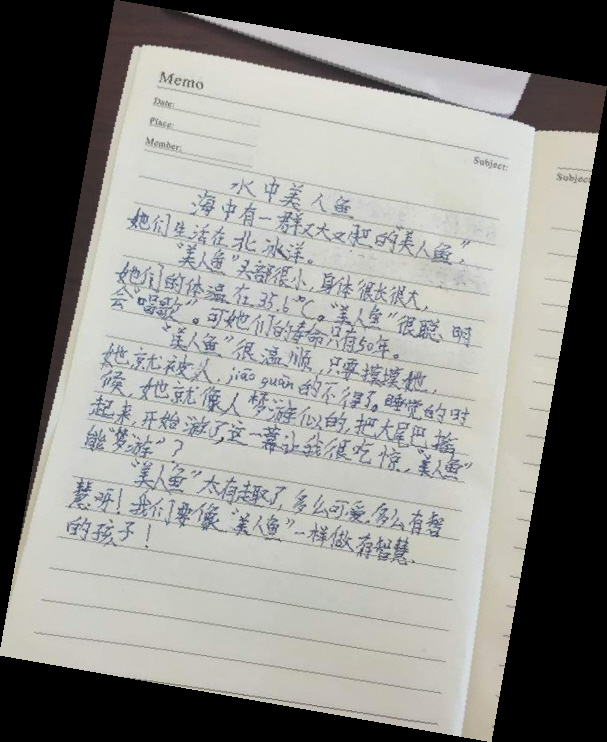 Memo
Date:
Place:
Member:
Subject:
Subject:
水中美人鱼
海中有一群又大又肥的“美人鱼”，
她们生活在北冰洋。
“美人鱼”头部很小，身体很长很大，
她们的体温在35.6℃。“美人鱼”很聪明
会“唱歌”。可她们的寿命只有50年。
“美人鱼”很温顺，只要摸摸她，
她就被人 jiāo guàn的不得了。睡觉的时
候，她就像人梦游似的，把大尾巴摇
起来，开始游了，这一幕让我很吃惊，“美人鱼”
能“梦游”？
“美人鱼”太有趣了，多么可爱，多么有智
慧呀！我们要像“美人鱼”一样做有智慧
的孩子！